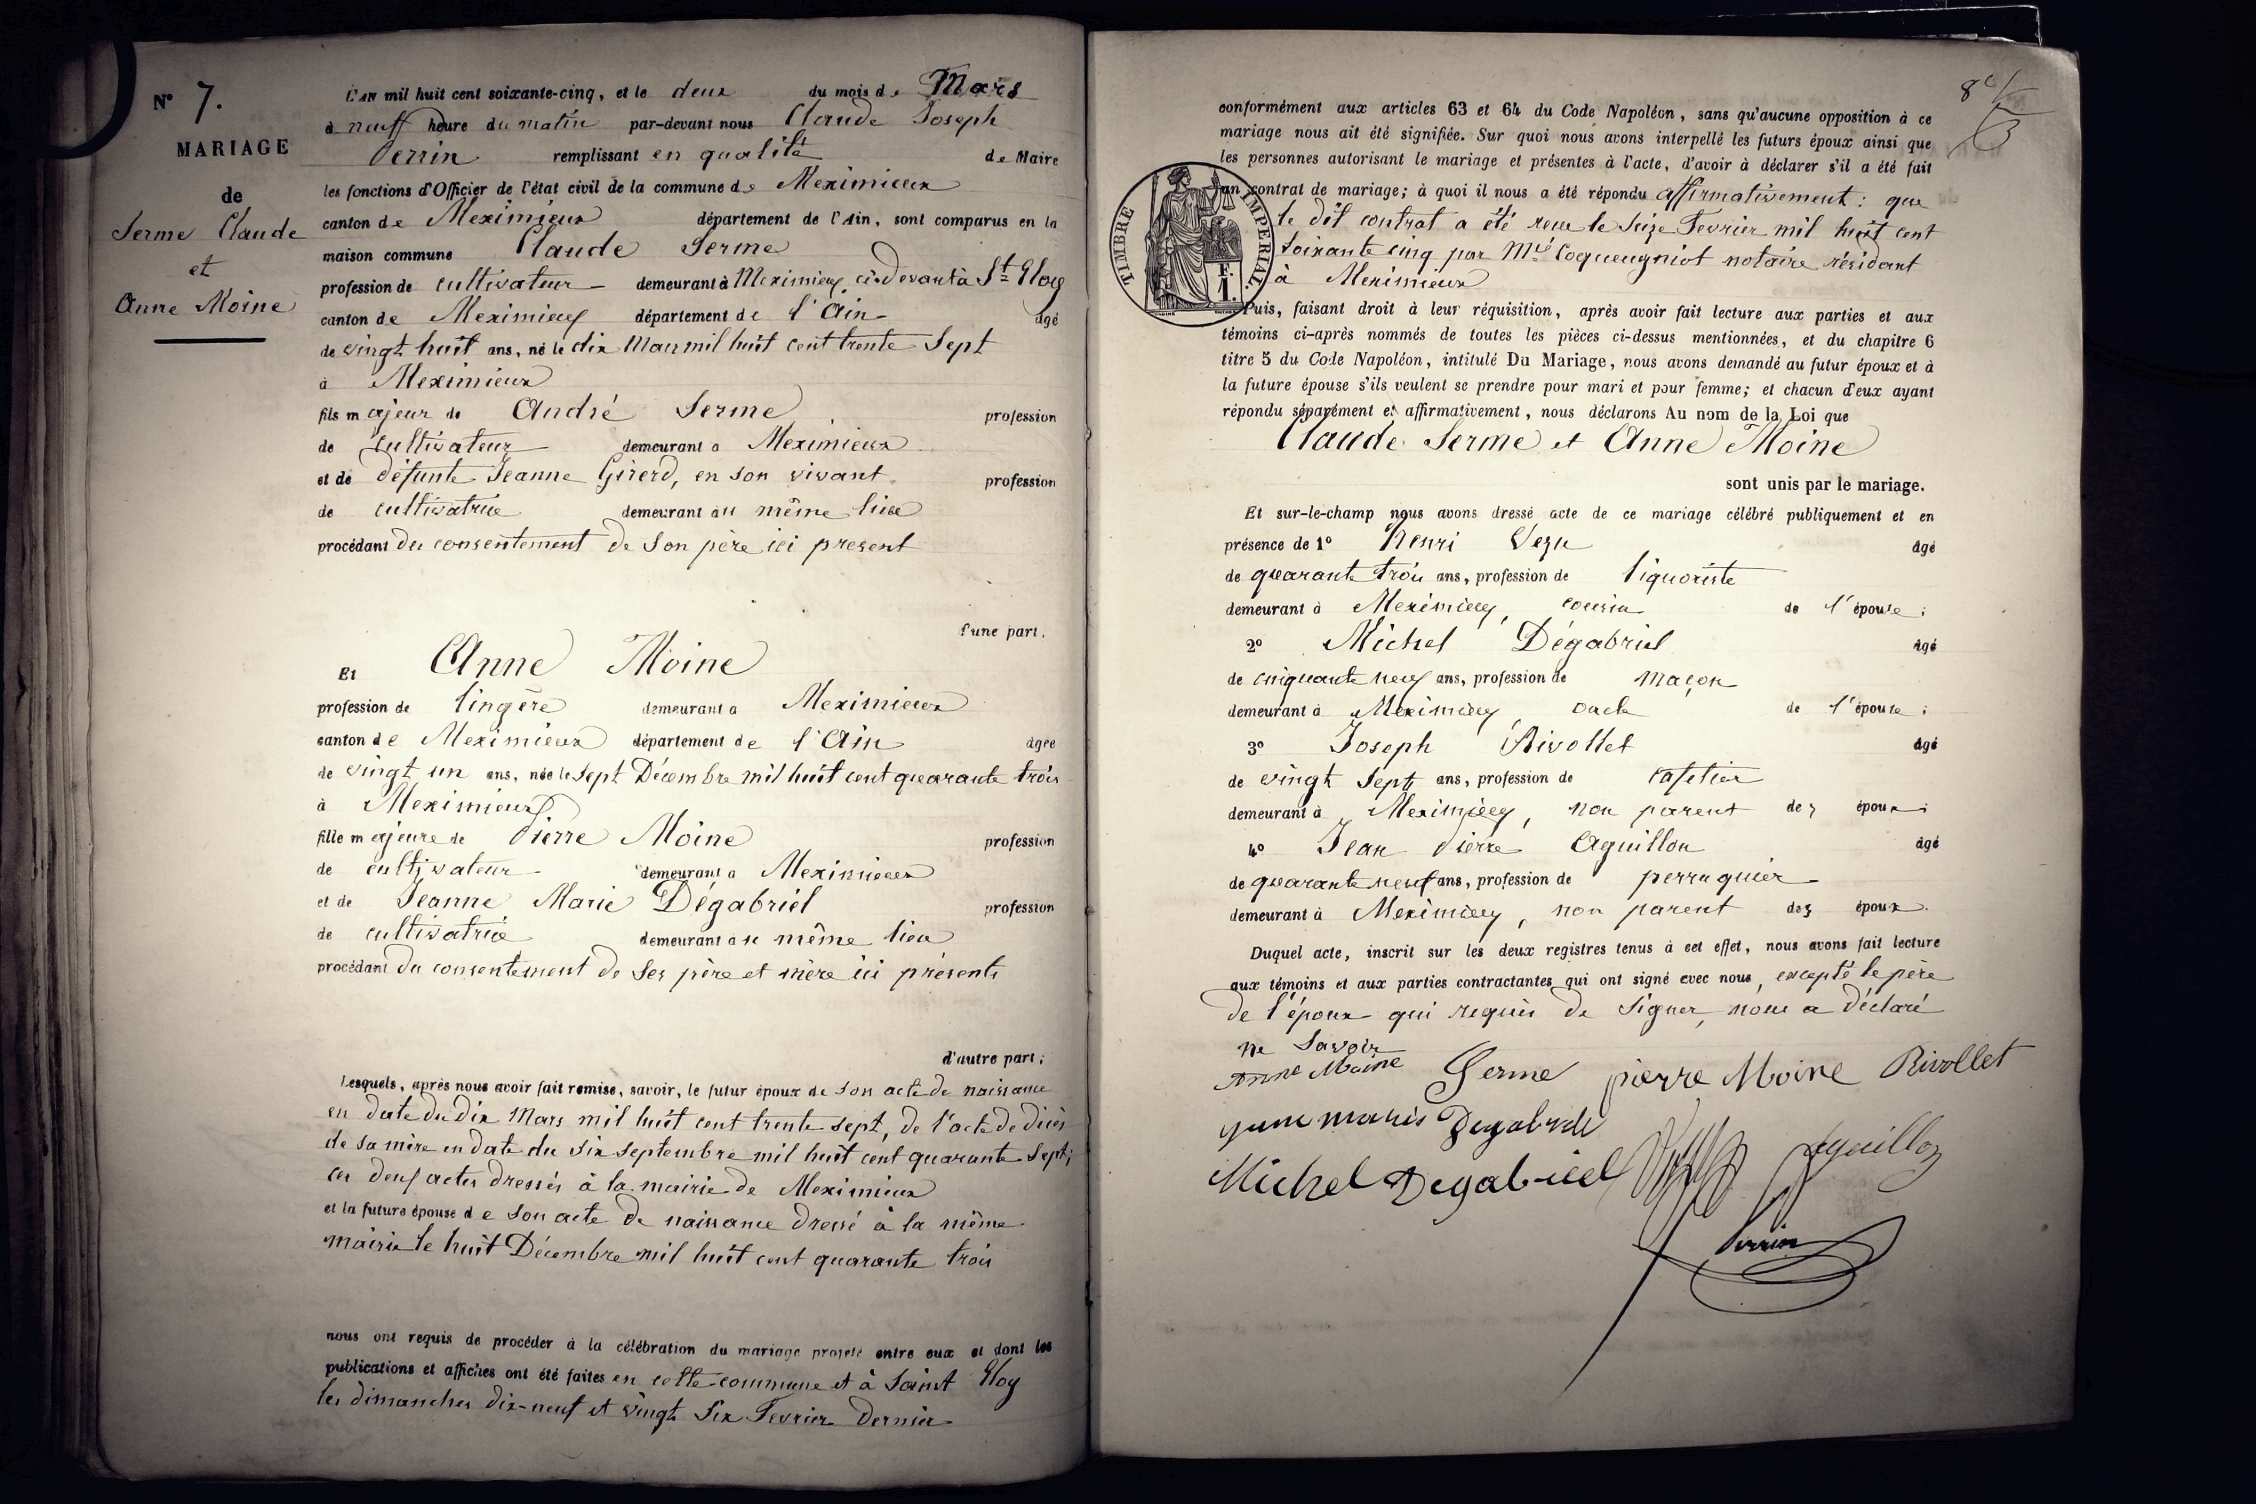 N° 7.
MARIAGE
de
Serme Claude
et
Anne Moine
L'AN mil huit cent soixante-cinq, et le deux du mois de Mars
à neuff heure du matin par-devant nous Claude Joseph
Perrin remplissant en qualité de Maire
les fonctions d'Officier de l'état civil de la commune de Meximieux
canton de Meximieux département de l'Ain, sont comparus en la
maison commune Claude Serme
profession de cultivateur demeurant à Meximieux ci-devant à St Eloy
canton de Meximieux département de l'Ain âgé
de vingt huit ans, né le dix Mars mil huit cent trente Sept
à Meximieux
fils majeur de André Serme profession
de cultivateur demeurant à Meximieux
et de défunte Jeanne Girerd, en son vivant profession
de cultivatrice demeurant au même lieu
procédant du consentement de son père ici présent
d'une part.
Et Anne Moine
profession de lingère demeurant à Meximieux
canton de Meximieux département de l'Ain âgée
de vingt un ans, née le sept Décembre mil huit cent quarante trois
à Meximieux
fille majeure de Pierre Moine profession
de cultivateur demeurant à Meximieux
et de Jeanne Marie Dégabriel profession
de cultivatrice demeurant au même lieu
procédant du consentement de ses père et mère ici présents
d'autre part;
Lesquels, après nous avoir fait remise, savoir, le futur époux de son acte de naissance
en date du dix Mars mil huit cent trente sept, de l'acte de décès
de sa mère en date du six septembre mil huit cent quarante sept;
ces deux actes dressés à la mairie de Meximieux
et la future épouse de son acte de naissance dressé à la même
mairie le huit Décembre mil huit cent quarante trois
nous ont requis de procéder à la célébration du mariage projeté entre eux et dont les
publications et affiches ont été faites en cette commune et à Saint Eloy
les dimanches dix-neuf et vingt six Fevrier dernier
conformément aux articles 63 et 64 du Code Napoléon, sans qu'aucune opposition à ce
mariage nous ait été signifiée. Sur quoi nous avons interpellé les futurs époux ainsi que
les personnes autorisant le mariage et présentes à l'acte, d'avoir à déclarer s'il a été fait
un contrat de mariage; à quoi il nous a été répondu affirmativement: que
le dit contrat a été reçu le seize Fevrier mil huit cent
soixante cinq par Me Coqueugniot notaire résidant
à Meximieux
TIMBRE IMPÉRIAL.
F.
1.
Puis, faisant droit à leur réquisition, après avoir fait lecture aux parties et aux
témoins ci-après nommés de toutes les pièces ci-dessus mentionnées, et du chapitre 6
titre 5 du Code Napoléon, intitulé Du Mariage, nous avons demandé au futur époux et à
la future épouse s'ils veulent se prendre pour mari et pour femme; et chacun d'eux ayant
répondu séparément et affirmativement, nous déclarons Au nom de la Loi que
Claude Serme et Anne Moine
sont unis par le mariage.
Et sur-le-champ nous avons dressé acte de ce mariage célébré publiquement et en
présence de 1° Henri Vezu âgé
de quarante trois ans, profession de liquoriste
demeurant à Meximieux, cousin de l'épouse;
2° Michel Dégabriel âgé
de cinquante neuf ans, profession de maçon
demeurant à Meximieux, oncle de l'épouse;
3° Joseph Rivollet âgé
de vingt sept ans, profession de cafetier
demeurant à Meximieux, non parent des époux;
4° Jean Pierre Aguillon âgé
de quarante neuf ans, profession de perruquier
demeurant à Meximieux, non parent des époux.
Duquel acte, inscrit sur les deux registres tenus à cet effet, nous avons fait lecture
aux témoins et aux parties contractantes qui ont signé avec nous, excepté le père
de l'époux qui requis de signer, nous a déclaré
ne savoir
Anne Moine Serme pierre Moine Rivollet
Michel Degabriel Aguillon
Perrin